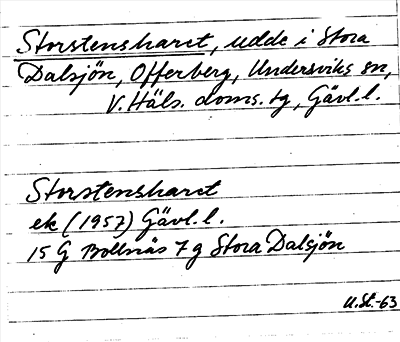 Storstensharet, udde i Stora
Dalsjön, Offerberg, Undersviks sn,
V. Häls. doms. tg, Gävl. l.
Storstensharet
ek (1957) Gävl. l.
15 G Bollnäs 7 g Stora Dalsjön
U.St.-63